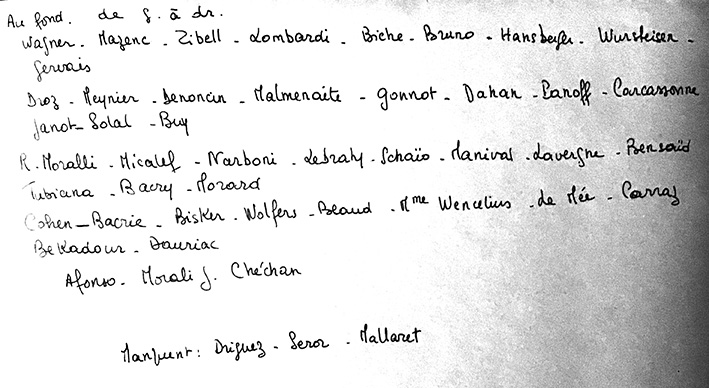 Au fond. de g. à dr.
Wagner - Mazenc - Zibell - Lombardi - Biche - Bruno - Hansberger - Wursteisen -
Gervais
Droz - Meynier - Denoncin - Malmenaite - Gonnot - Dahan - Panoff - Carcassonne
Janot - Solal - Buy
R. Moralli - Micalef - Narboni - Lebraty - Schaïo - Manival - Lavergne - Bensaïd
Tubiana - Bacry - Morard
Cohen-Bacrie - Bisker - Wolfers - Beaud - Mme Wencelius - de Mée - Carraz
Bekadour - Dauriac
Afonso - Morali J. Chéchan
Manquent : Driguez - Seror - Mallaret